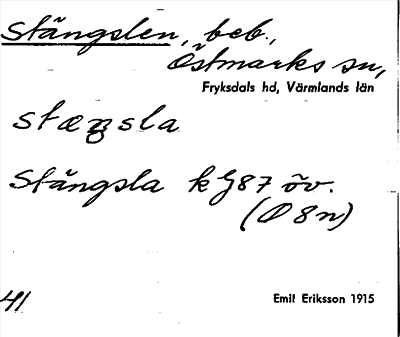 Stängslen, beb.,
Östmarks sn,
Fryksdals hd, Värmlands län
Stängsla k G87 öv.
(Ö 8n)
41
Emil Eriksson 1915